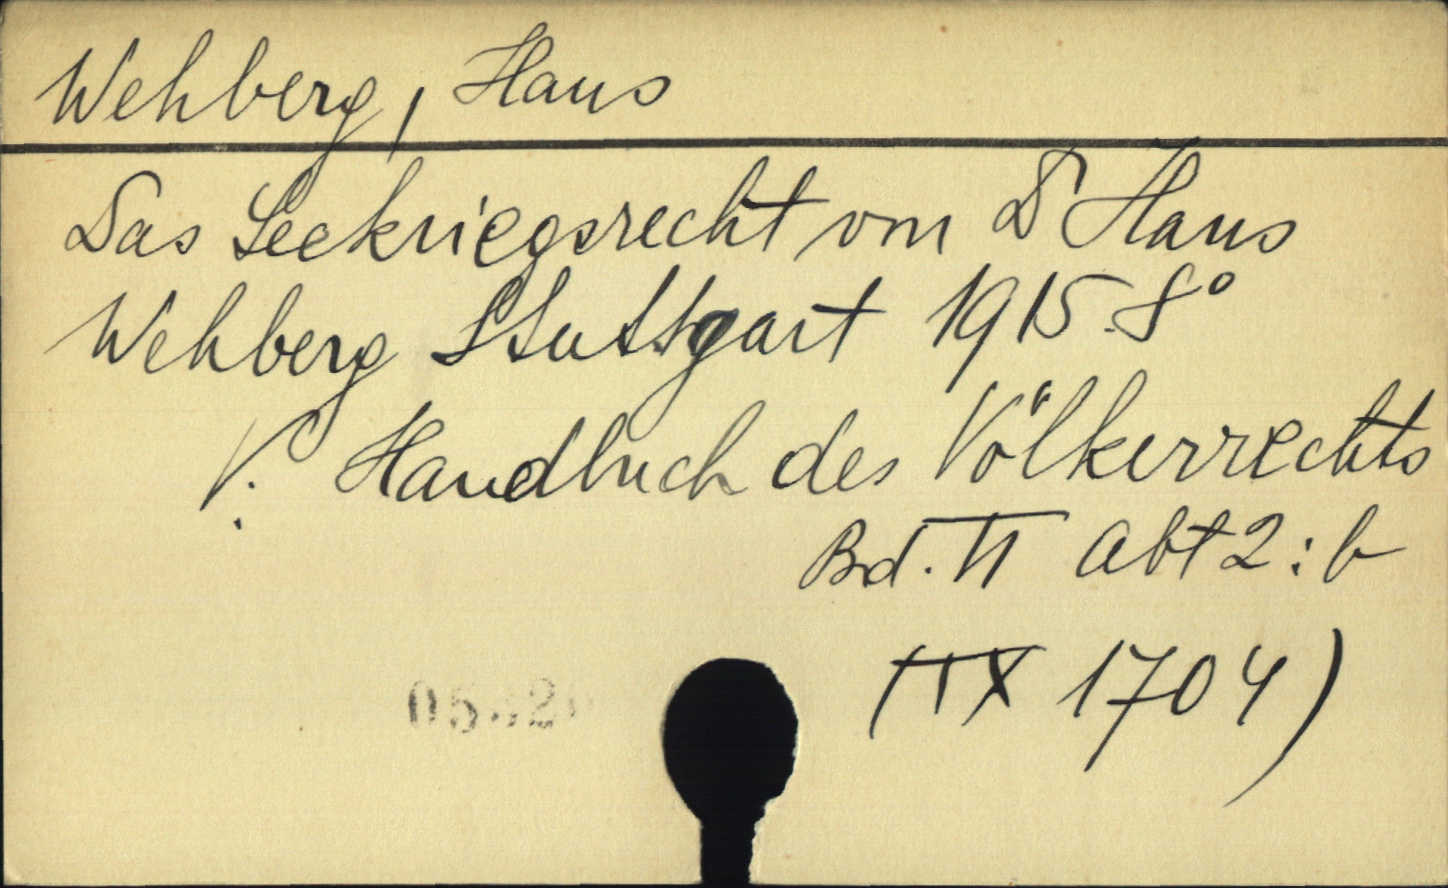 Wehberg, Hans
Das Seekriegsrecht von Dr Hans
Wehberg Stuttgart 1915. 8°
V. Handbuch des Völkerrechts
Bd. II Abt 2 : b
(IX 1704)